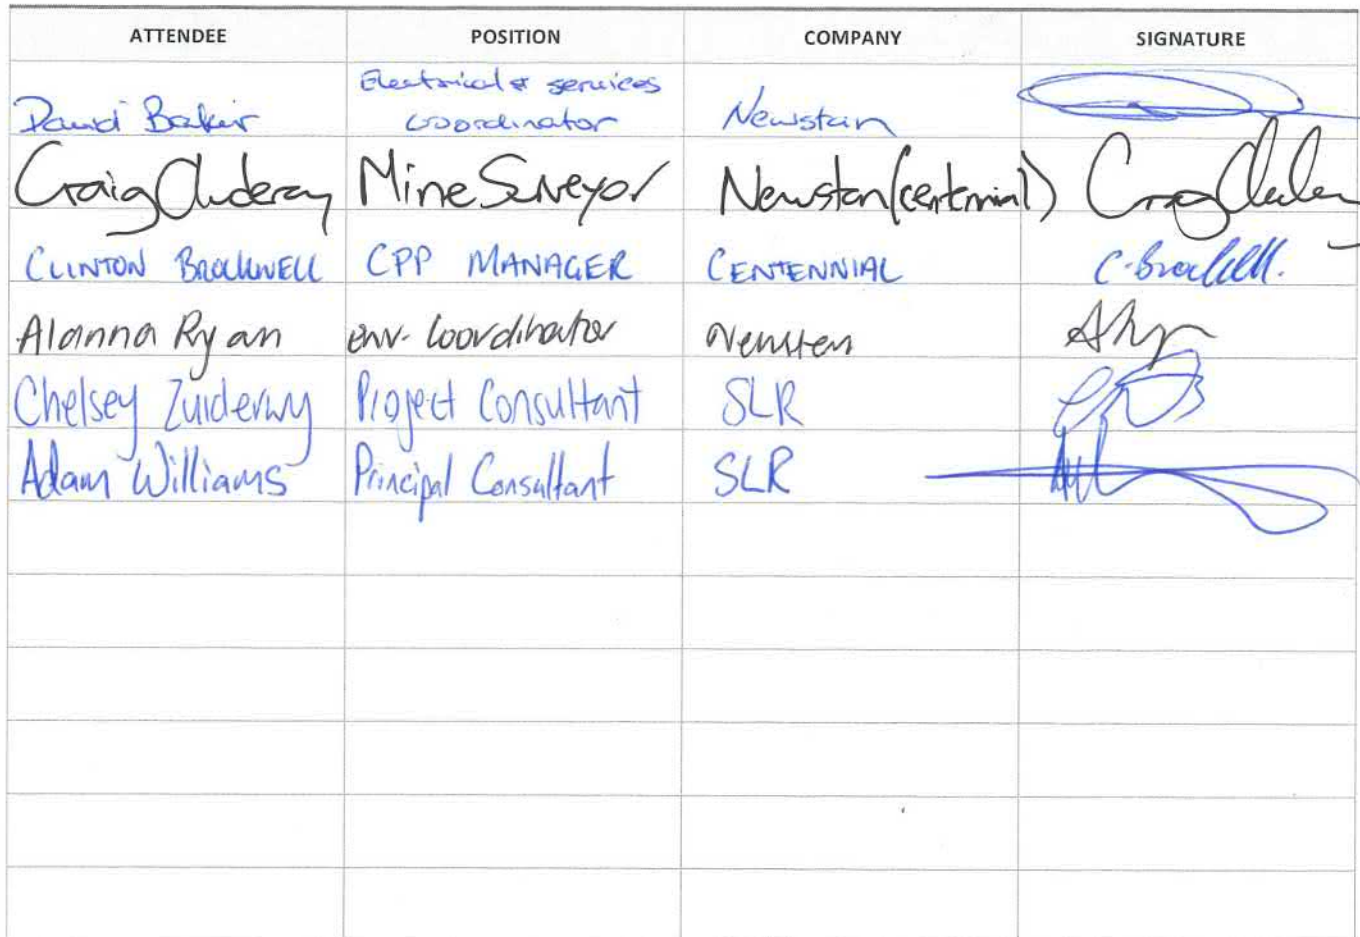 ATTENDEE POSITION COMPANY SIGNATURE
Electrical & services
David Baker coordinator Newstan
Craig Mine Surveyor Newstan (centennial) Craig
CLINTON BROCKWELL CPP MANAGER CENTENNIAL C. Brockwell.
Alanna Ryan env. Coordinator Newstan
Chelsey Zuiderwy Project Consultant SLR
Adam Williams Principal Consultant SLR